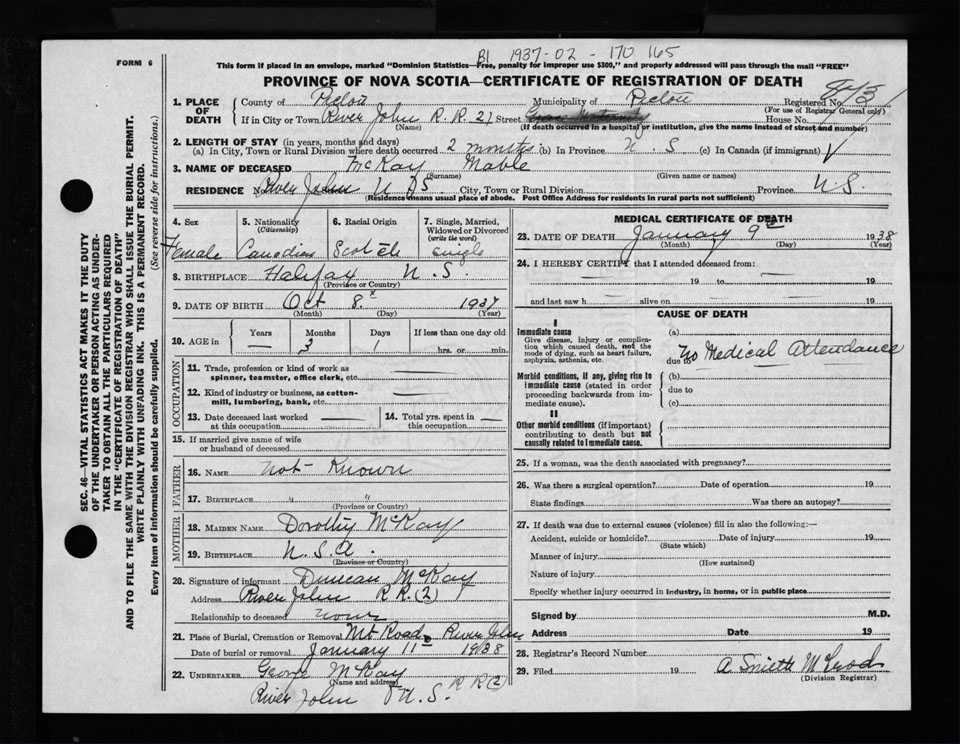 B1 1937-02 - 170 165
FORM 6
This form if placed in an envelope, marked "Dominion Statistics—Free, penalty for improper use $300," and properly addressed will pass through the mail "FREE"
PROVINCE OF NOVA SCOTIA—CERTIFICATE OF REGISTRATION OF DEATH
1. PLACE OF DEATH County of Pictou Municipality of Pictou Registered No.
(For use of Registrar General only)
If in City or Town River John R.R. 2) Street Grace Maternity House No.
(Name) (If death occurred in a hospital or institution, give the name instead of street and number)
2. LENGTH OF STAY (in years, months and days)
(a) In City, Town or Rural Division where death occurred 2 months (b) In Province N.S (c) In Canada (if immigrant)
3. NAME OF DECEASED McKay Mable
(Surname) (Given name or names)
RESIDENCE No. River John N.S. City, Town or Rural Division Province N.S.
(Residence means usual place of abode. Post Office Address for residents in rural parts not sufficient)
4. Sex Female
5. Nationality (Citizenship) Canadian
6. Racial Origin Scotch
7. Single, Married, Widowed or Divorced (write the word) Single
8. BIRTHPLACE Halifax N.S.
(Province or Country)
9. DATE OF BIRTH Oct 8 1937
(Month) (Day) (Year)
10. AGE in Years — Months 3 Days 1 If less than one day old
hrs. or min.
OCCUPATION
11. Trade, profession or kind of work as spinner, teamster, office clerk, etc.
12. Kind of industry or business, as cotton-mill, lumbering, bank, etc.
13. Date deceased last worked at this occupation
14. Total yrs. spent in this occupation
15. If married give name of wife or husband of deceased
FATHER
16. NAME Not Known
17. BIRTHPLACE " "
(Province or Country)
MOTHER
18. MAIDEN NAME Dorothy McKay
19. BIRTHPLACE N.S.
(Province or Country)
20. Signature of informant Duncan McKay
Address River John R.R. (2)
Relationship to deceased
21. Place of Burial, Cremation or Removal Mt Road River John
Date of burial or removal January 11 1938
22. UNDERTAKER George McKay
(Name and address)
River John N.S. R R (2)
MEDICAL CERTIFICATE OF DEATH
23. DATE OF DEATH January 9th 1938
(Month) (Day) (Year)
24. I HEREBY CERTIFY that I attended deceased from:
19 to 19
and last saw h alive on 19
CAUSE OF DEATH
I
Immediate cause
Give disease, injury or complication which caused death, not the mode of dying, such as heart failure, asphyxia, asthenia, etc.
(a)
due to No Medical Attendance
Morbid conditions, if any, giving rise to immediate cause (stated in order proceeding backwards from immediate cause).
(b)
due to
(c)
II
Other morbid conditions (if important) contributing to death but not causally related to immediate cause.
25. If a woman, was the death associated with pregnancy?
26. Was there a surgical operation? Date of operation 19
State findings Was there an autopsy?
27. If death was due to external causes (violence) fill in also the following:—
Accident, suicide or homicide? Date of injury 19
(State which)
Manner of injury
(How sustained)
Nature of injury
Specify whether injury occurred in industry, in home, or in public place
Signed by M.D.
Address Date 19
28. Registrar's Record Number
29. Filed 19 A Smith McLeod
(Division Registrar)
SEC. 46—VITAL STATISTICS ACT MAKES IT THE DUTY
OF THE UNDERTAKER OR PERSON ACTING AS UNDER-
TAKER TO OBTAIN ALL THE PARTICULARS REQUIRED
IN THE "CERTIFICATE OF REGISTRATION OF DEATH"
AND TO FILE THE SAME WITH THE DIVISION REGISTRAR WHO SHALL ISSUE THE BURIAL PERMIT.
WRITE PLAINLY WITH UNFADING INK. THIS IS A PERMANENT RECORD.
Every item of information should be carefully supplied. (See reverse side for instructions.)